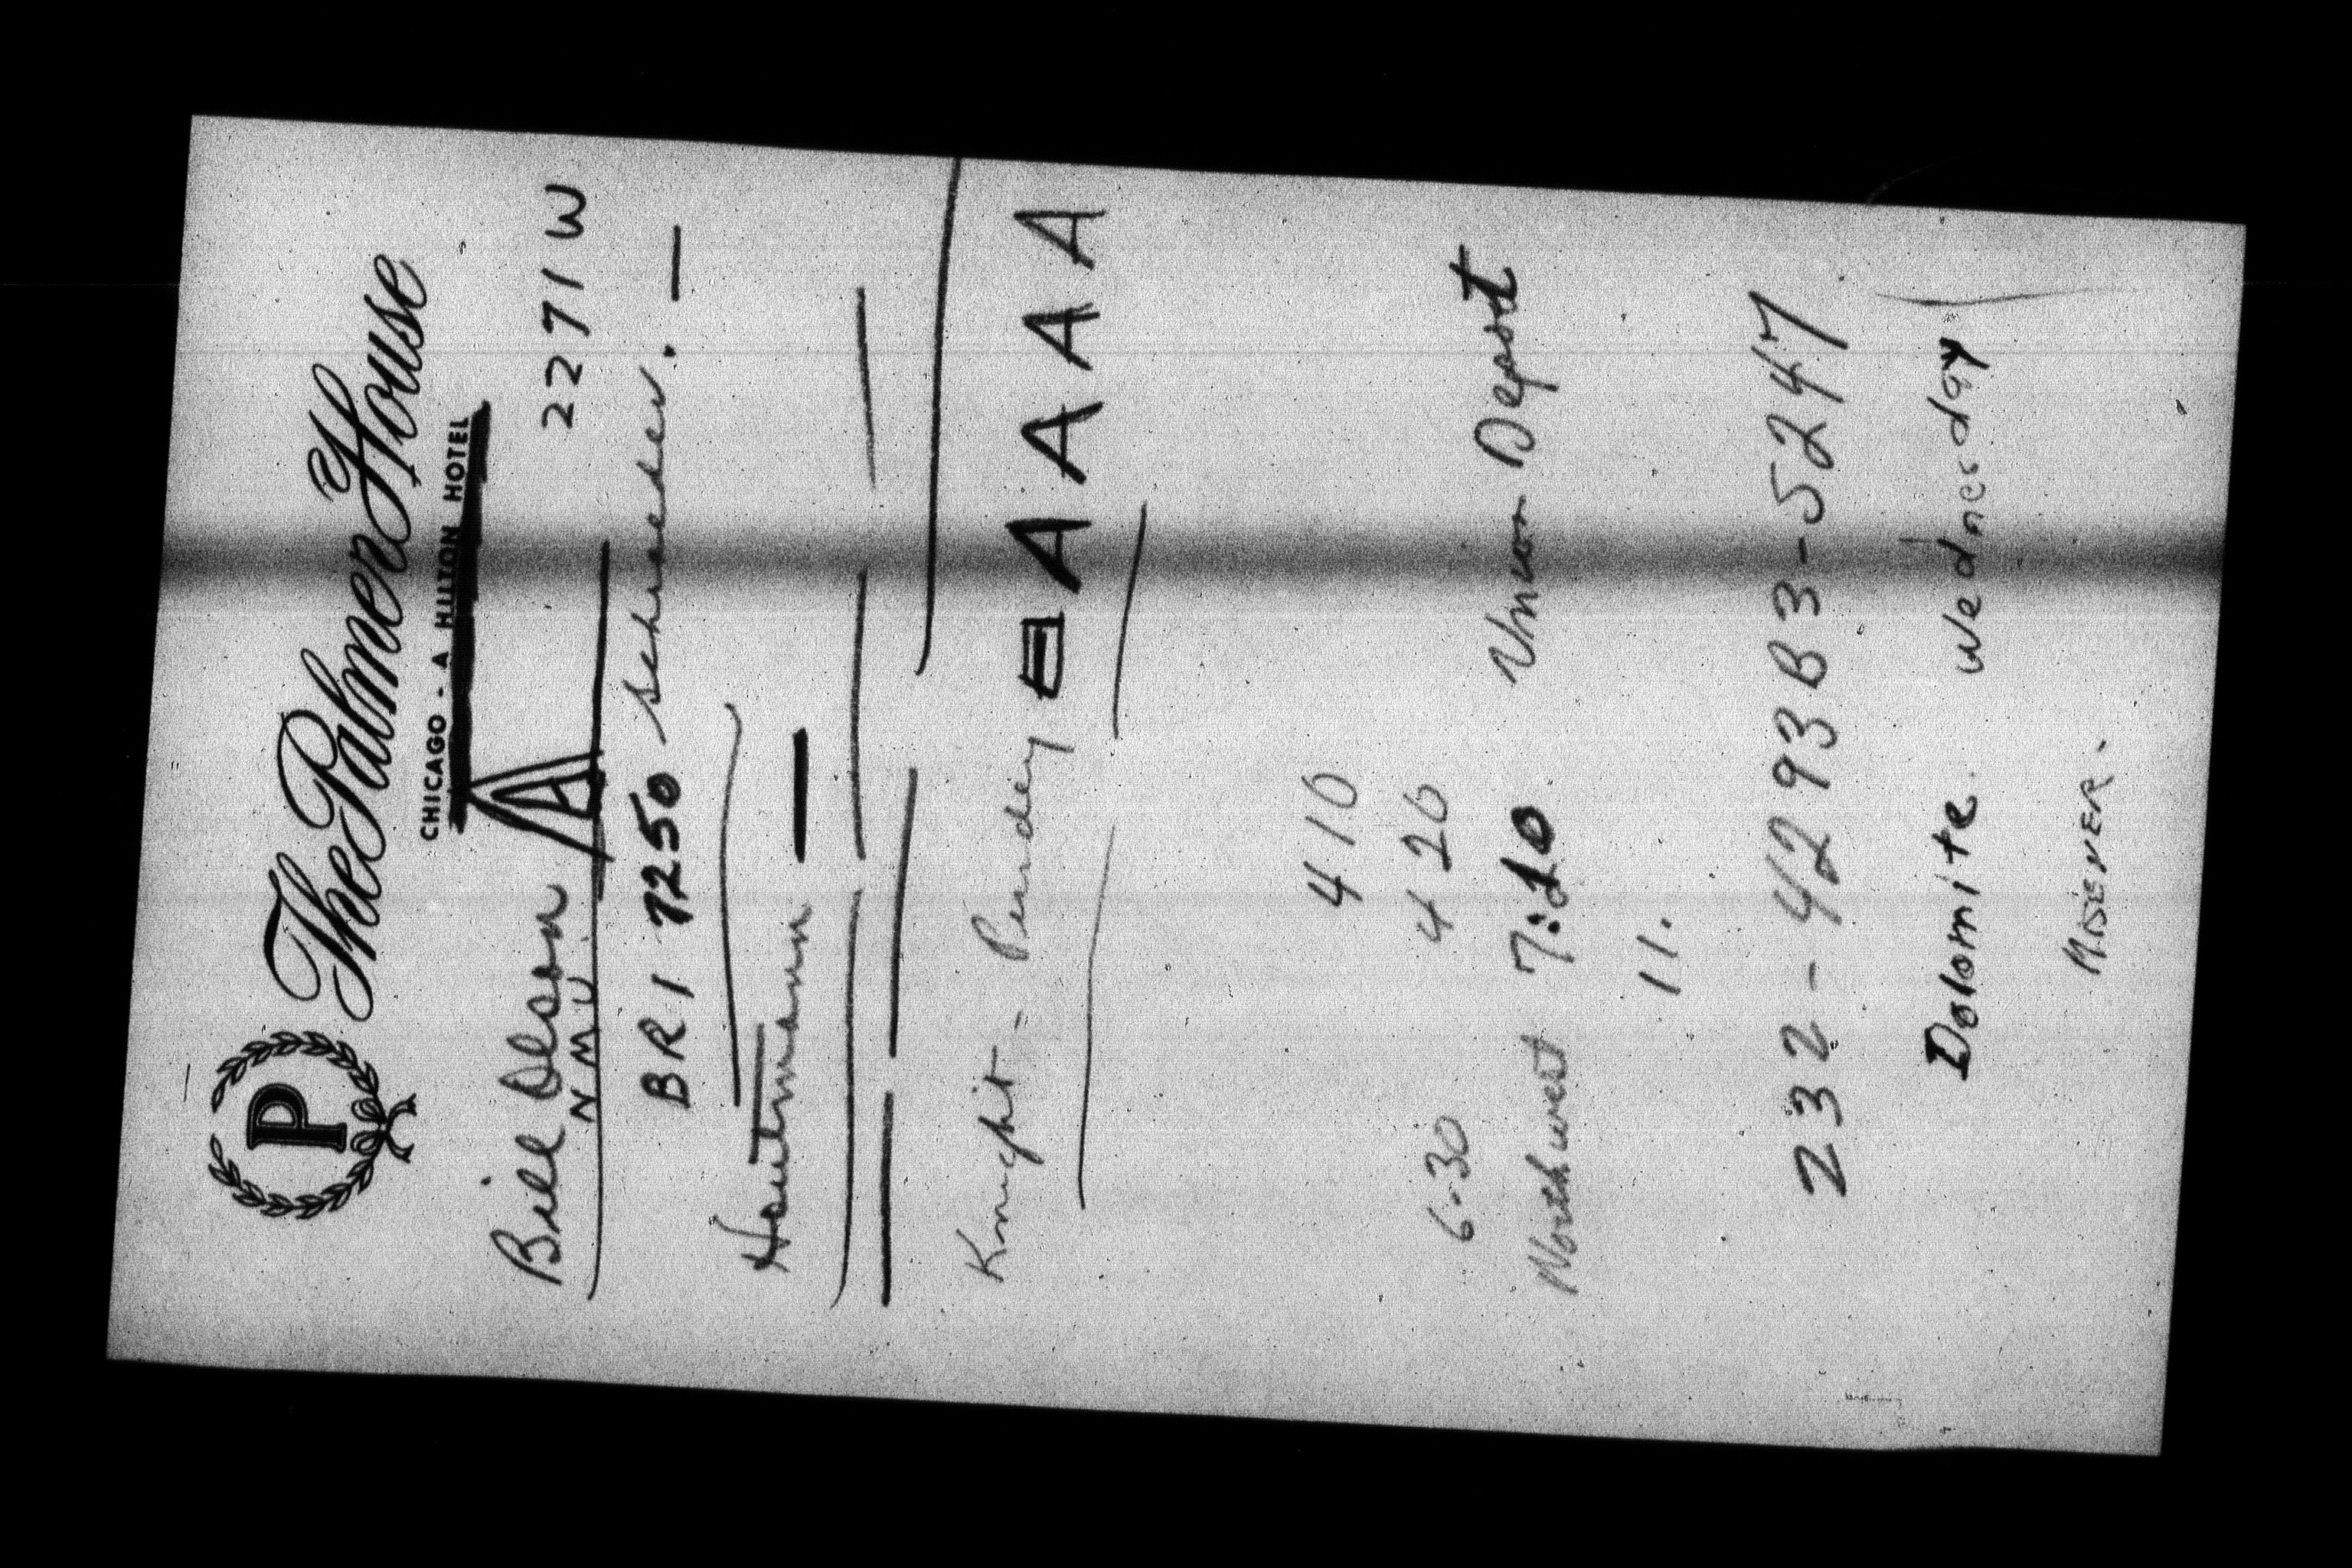 P The Palmer House
CHICAGO - A HILTON HOTEL
Bill Olson A 2271 W
NMU
BR 1 7250 Schroeder. —
Houtmann —
Knight - Purdey A A A A
410
6-30 420
Northwest 7:10 Union Depot
11.
232-4293 B3-5247
Dolomite. Wednesday
MISENER.